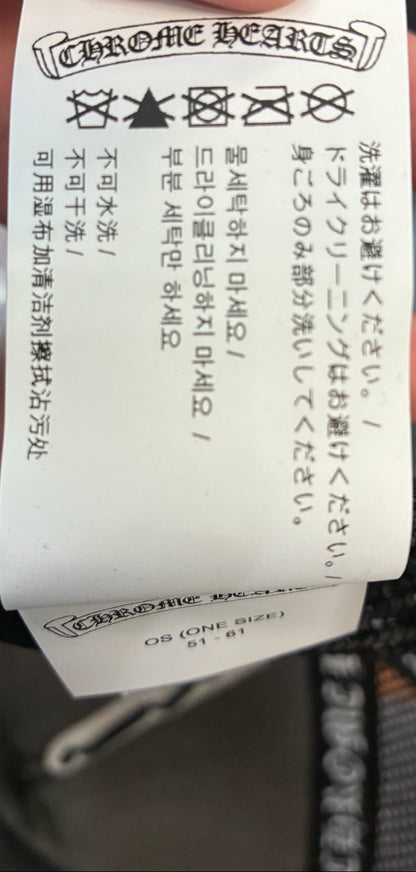 CHROME HEARTS
洗濯はお避けください。 /
ドライクリーニングはお避けください。 /
身ごろのみ部分洗いしてください。
물세탁하지 마세요 /
드라이클리닝하지 마세요 /
부분 세탁만 하세요
不可水洗 /
不可干洗 /
可用湿布加清洁剂擦拭沾污处
CHROME HEARTS
OS (ONE SIZE)
51 - 61